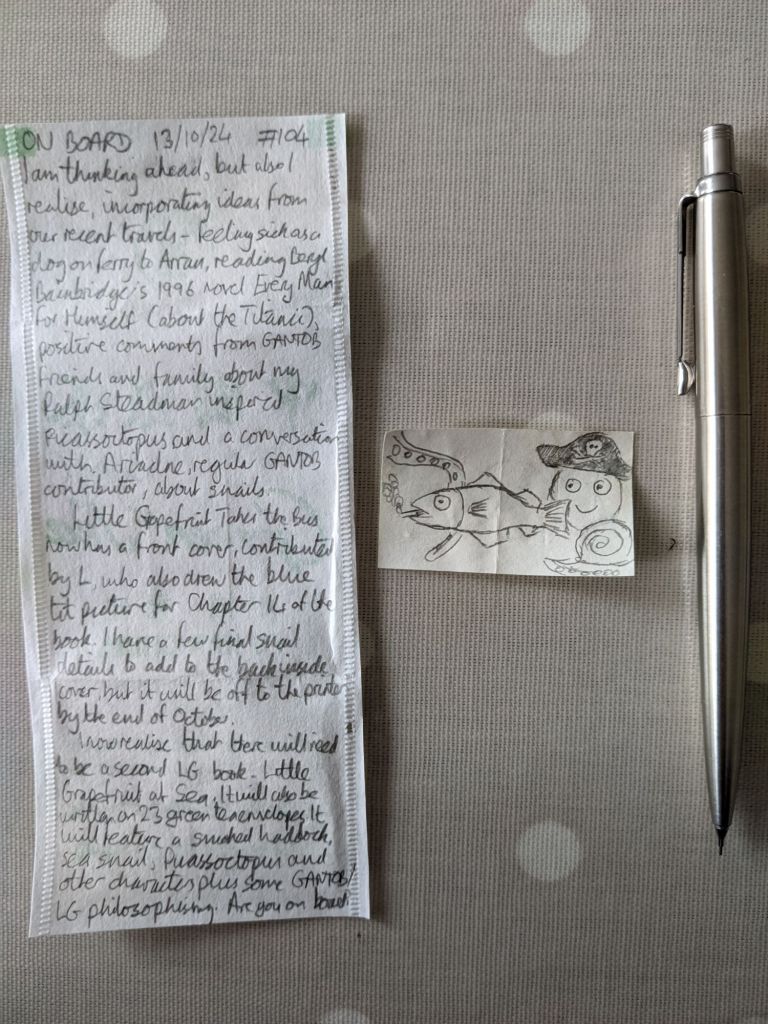 ON BOARD 13/10/24 #104
I am thinking ahead, but also I
realise, incorporating ideas from
our recent travels - feeling sick as a
dog on ferry to Arran, reading Beryl
Bainbridge's 1996 novel Every Man
for Himself (about the Titanic),
positive comments from GANTOB
friends and family about my
Ralph Steadman inspired
Picassoctopus and a conversation
with Ariadne, regular GANTOB
contributor, about snails.
Little Grapefruit Takes the Bus
now has a front cover, contributed
by L, who also drew the blue
tit picture for Chapter 14 of the
book. I have a few final snail
details to add to the back inside
cover, but it will be off to the printer
by the end of October.
I now realise that there will need
to be a second LG book - Little
Grapefruit at Sea. It will also be
written on 23 green tea envelopes. It
will feature a smoked haddock,
sea snail, Picassoctopus and
other characters plus some GANTOB/
LG philosophising. Are you on board?